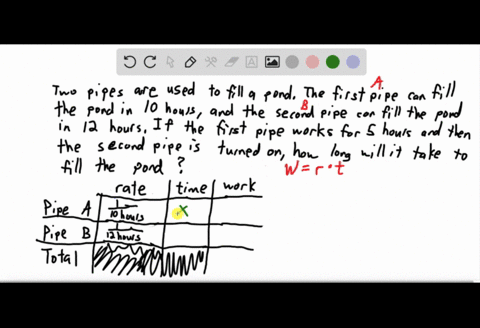 A
Two pipes are used to fill a pond. The first pipe can fill
the pond in 10 hours, and the second pipe can fill the pond
B
in 12 hours. If the first pipe works for 5 hours and then
the second pipe is turned on, how long will it take to
fill the pond?
W = r · t
rate time work
Pipe A 1/10 hours x
Pipe B 1/12 hours
Total